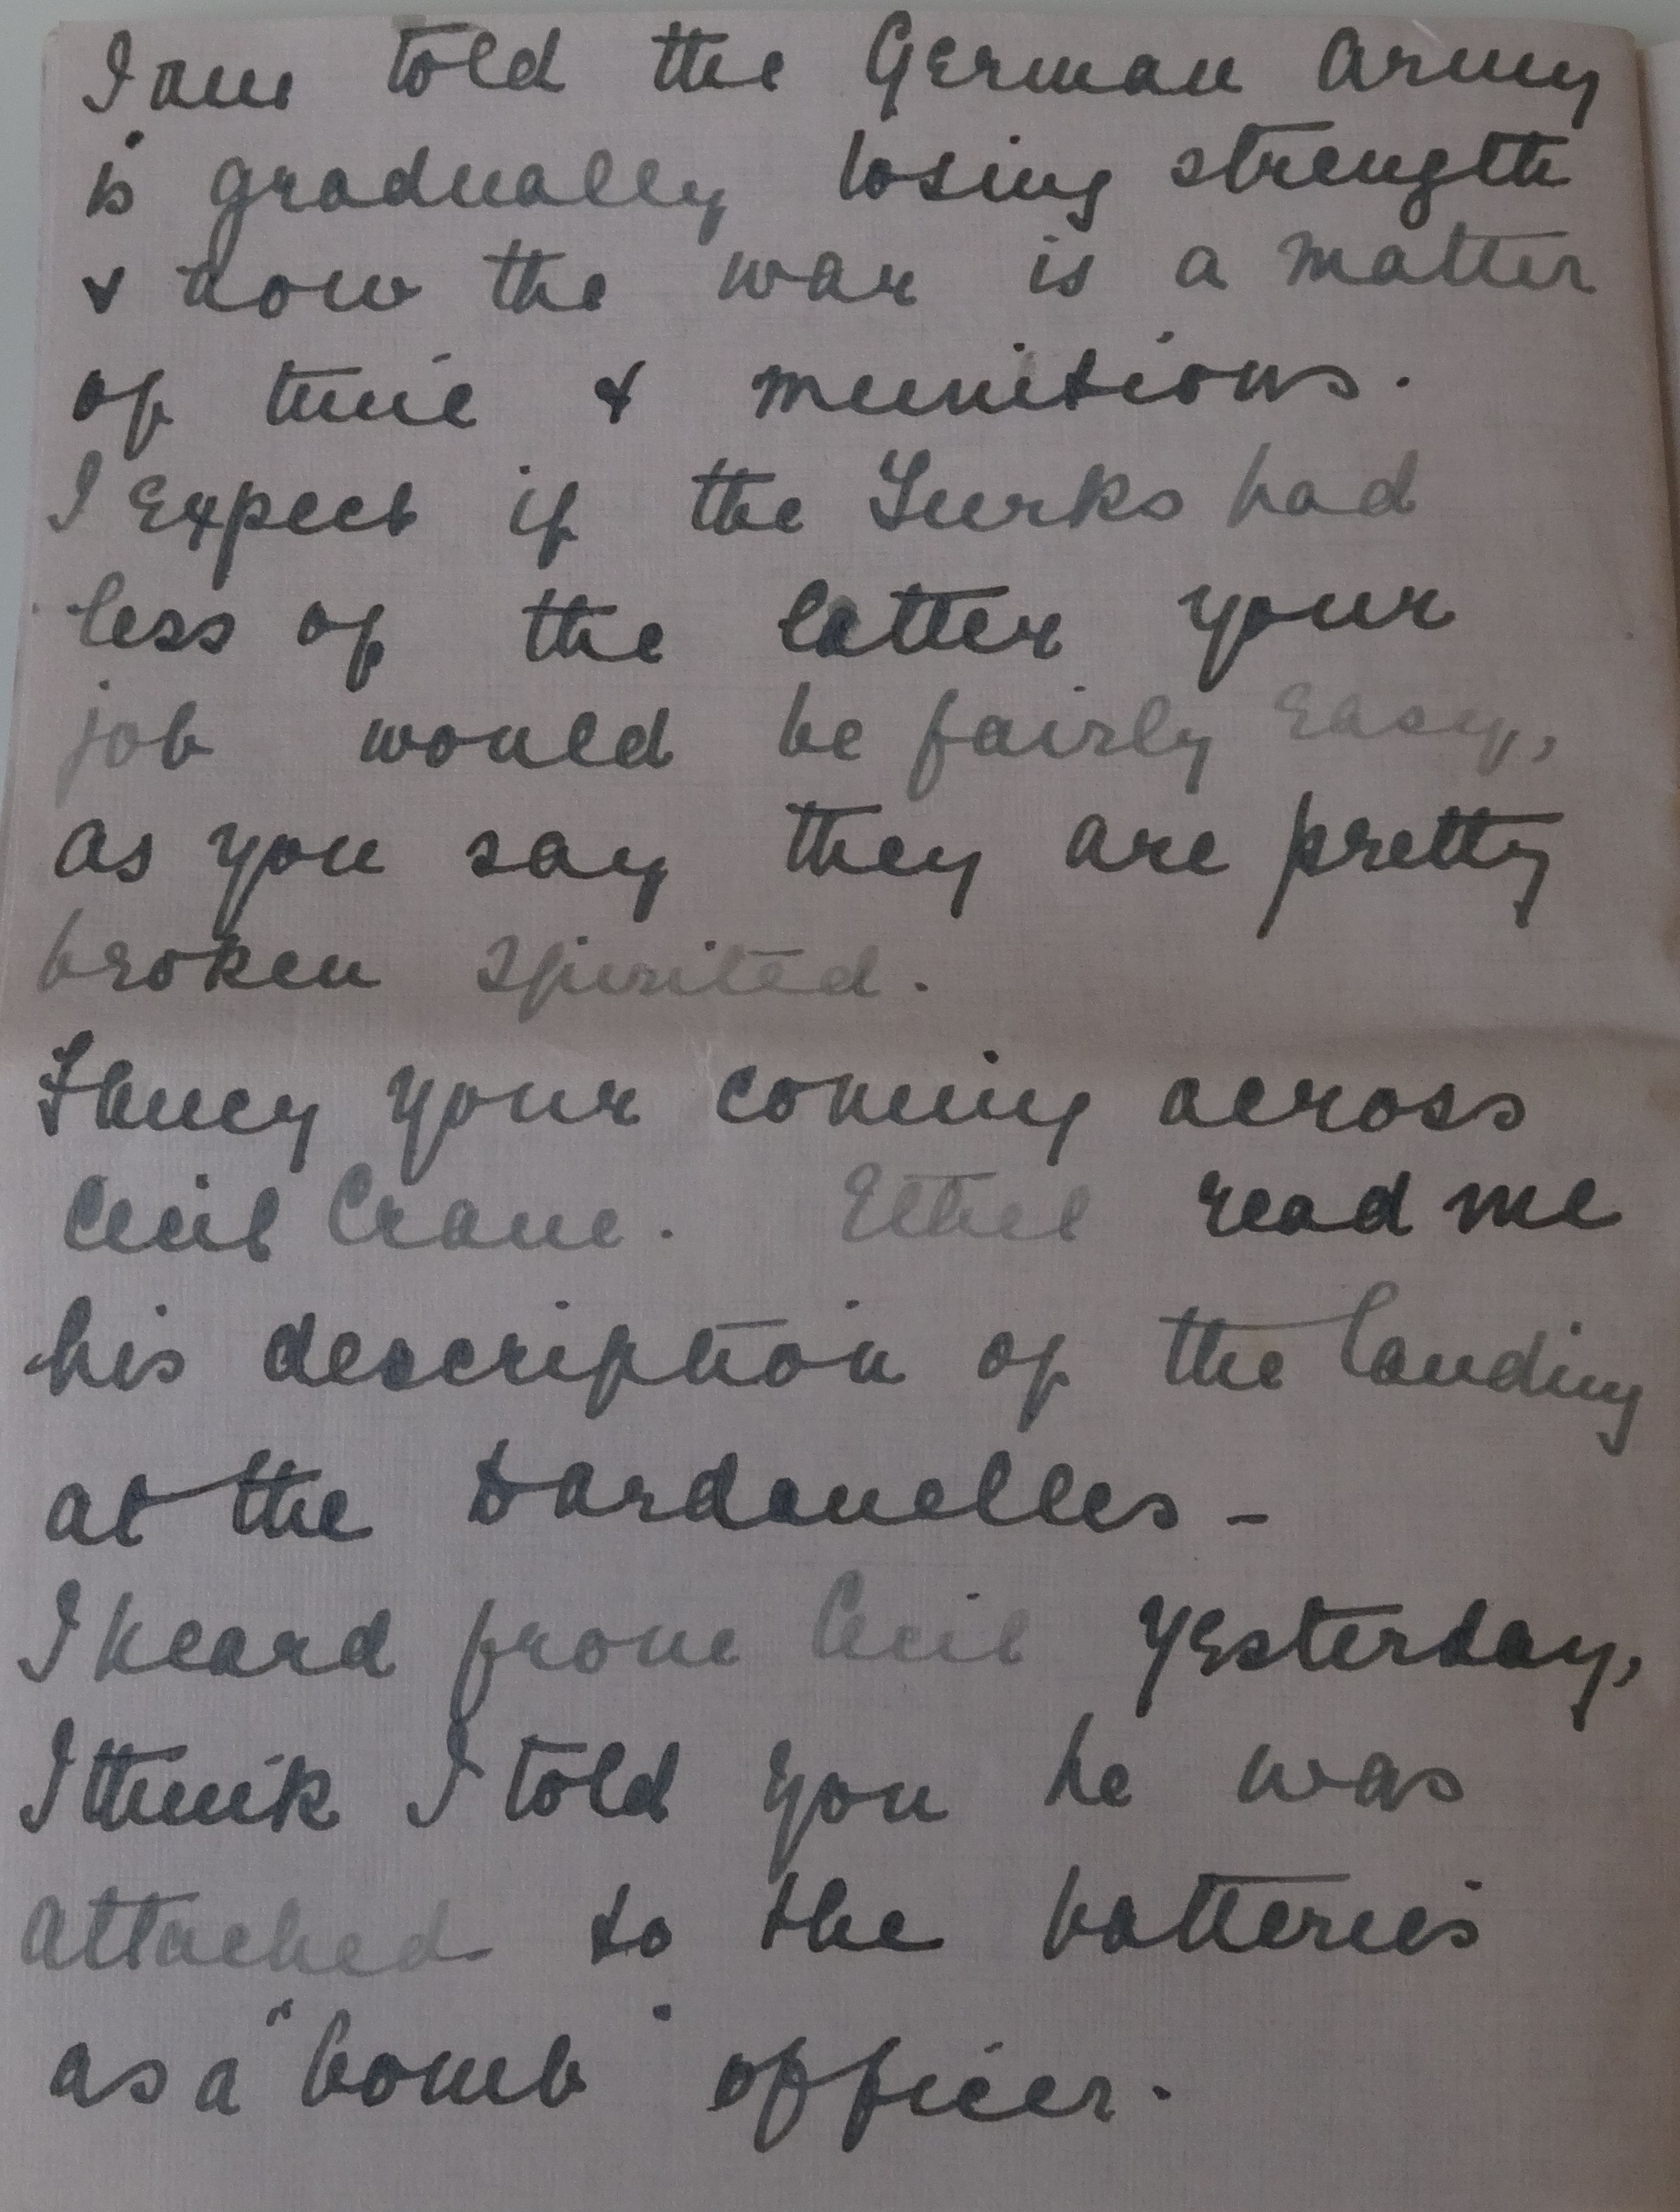 I am told the German Army
is gradually losing strength
& now the war is a matter
of time & munitions.
I Expect if the Turks had
less of the latter your
job would be fairly Easy,
as you say they are pretty
broken spirited.
Fancy your coming across
Cecil Crane. Ethel read me
his description of the landing
at the Dardanelles -
I heard from Cecil yesterday,
I think I told you he was
attached to the batteries
as a "bomb" officer.